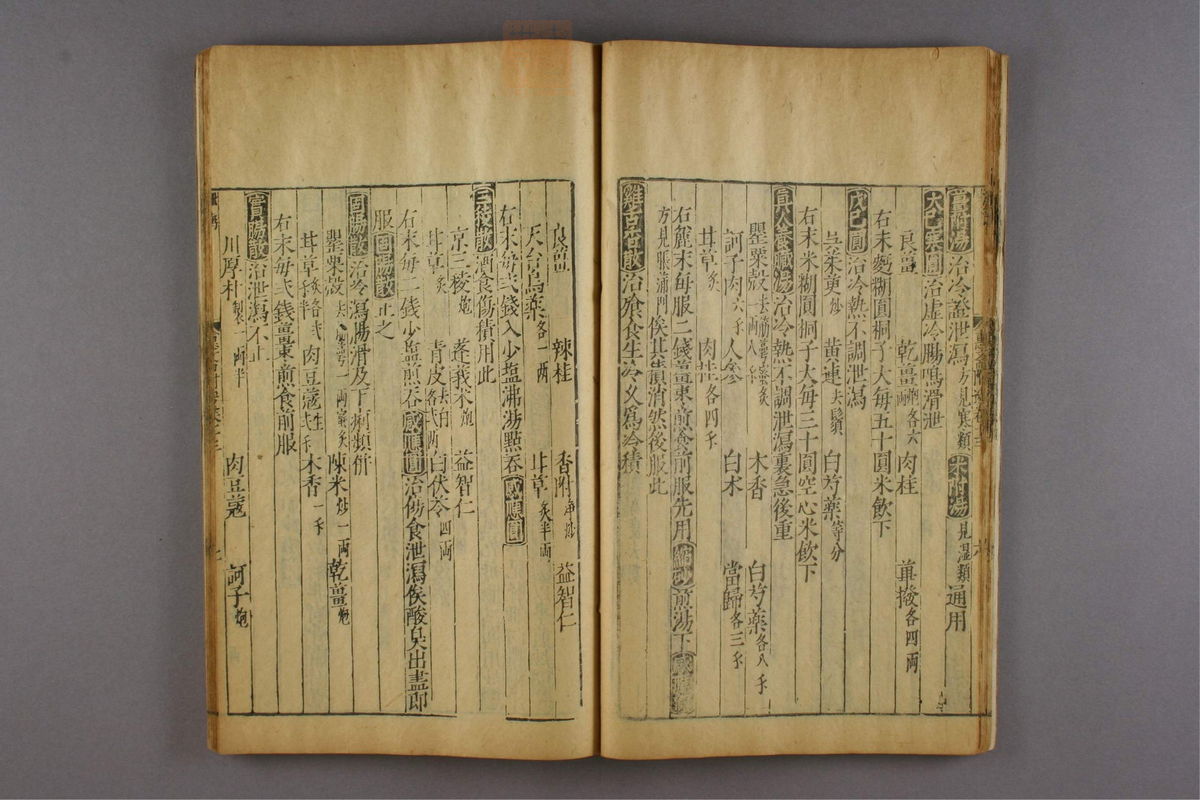 薑附湯治冷證泄瀉方見寒類朮附湯見濕類通用
大巳寒圓治虛冷腸鳴滑泄
良薑 乾薑炮各六兩 肉桂 蓽撥各四兩
右末麪糊圓桐子大每五十圓米飲下
戊巳圓治冷熱不調泄瀉
吳茱萸炒 黃連去鬚 白芍藥等分
右末米糊圓桐子大每三十圓空心米飲下
眞人養臟湯治冷熱不調泄瀉裏急後重
罌粟殼 木香 白芍藥各八錢
訶子肉六錢 人參 白朮 當歸各三錢
甘草炙 肉桂各四錢
右麄末每服二錢薑棗煎食前服先用縮砂煎湯下感應圓
方見脹滿門俟其積消然後服此
雞舌香散治飱食生冷久爲冷積
良薑 辣桂 香附淨炒 益智仁
天台烏藥各一兩 甘草炙半兩
右末每弍錢入少塩沸湯點吞感應圓
三稜散酒食傷積用此
京三稜炮 蓬莪朮炮 益智仁
甘草炙 青皮去白各弍兩 白茯苓四兩
右末每二錢少塩煎吞感應圓治傷食泄瀉俟酸臭出盡即
服固腸散止之
固腸散治冷瀉腸滑及下痢類併
罌粟殼 陳米炒一兩 乾薑炮
甘草 肉豆蔻生弍錢 木香一錢
右末每弍錢薑棗煎食前服
實腸散治泄瀉不止
川厚朴製一兩半 肉豆蔻 訶子炮